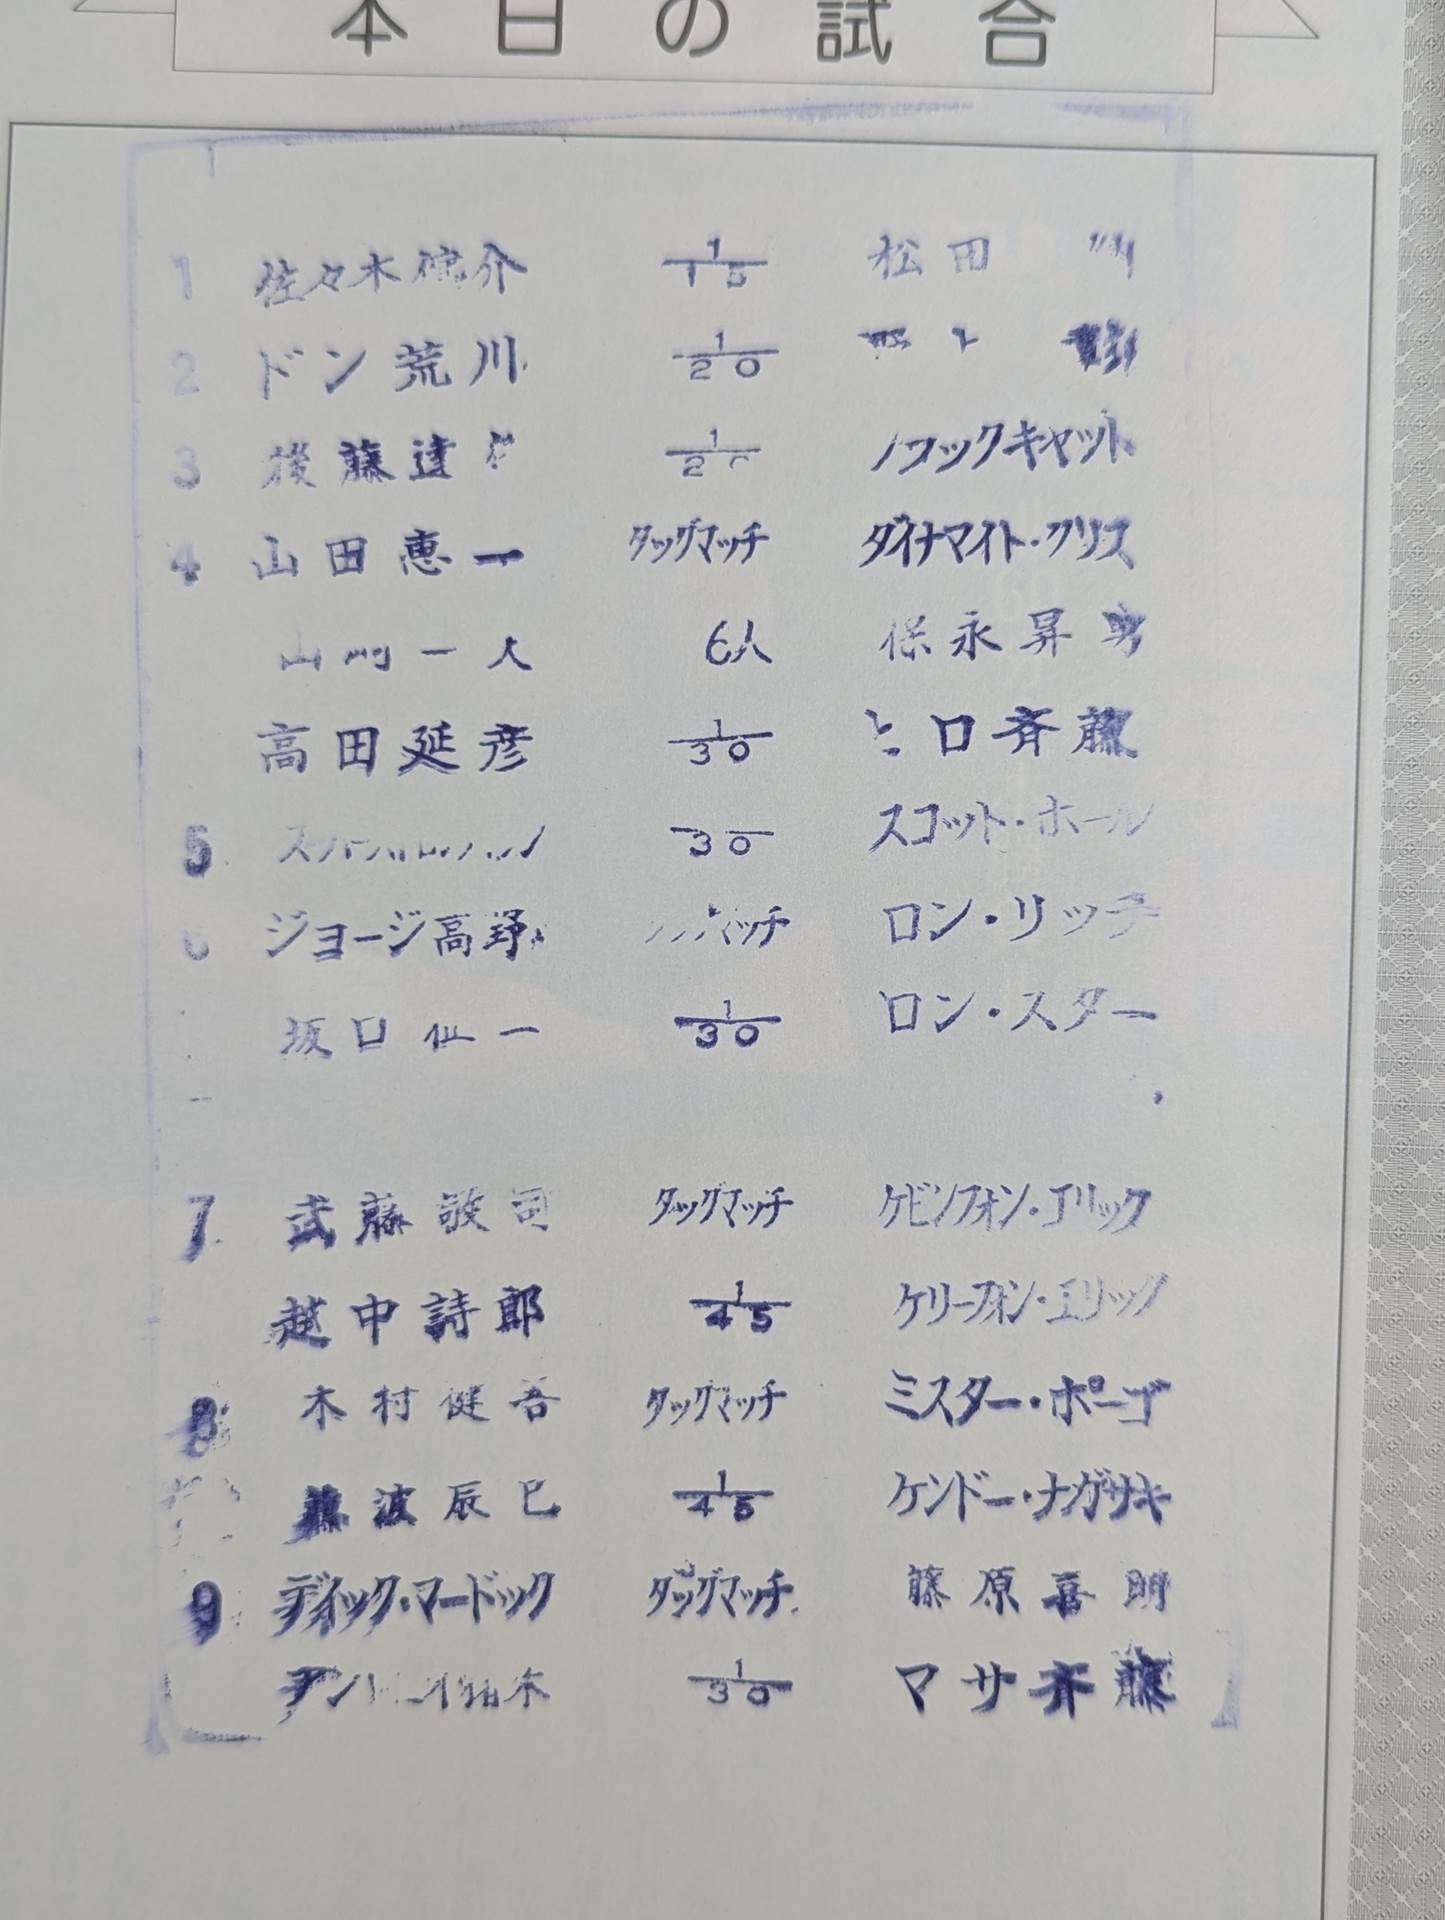 本日の試合
1 佐々木健介 1/15 松田
2 ドン荒川 1/20
3 後藤達 1/20 ブラックキャット
4 山田恵一 タッグマッチ ダイナマイト・クリス
山崎一夫 6人 保永昇男
高田延彦 1/30 ヒロ斉藤
5 30 スコット・ホール
6 ジョージ高野 タッグマッチ ロン・リッチ
坂口征一 1/30 ロン・スター
7 武藤敬司 タッグマッチ ケビンフォン・エリック
越中詩郎 1/45 ケリーフォン・エリック
8 木村健吾 タッグマッチ ミスター・ポーゴ
藤波辰巳 1/45 ケンドー・ナガサキ
9 ディック・マードック タッグマッチ 藤原喜明
1/30 マサ斉藤